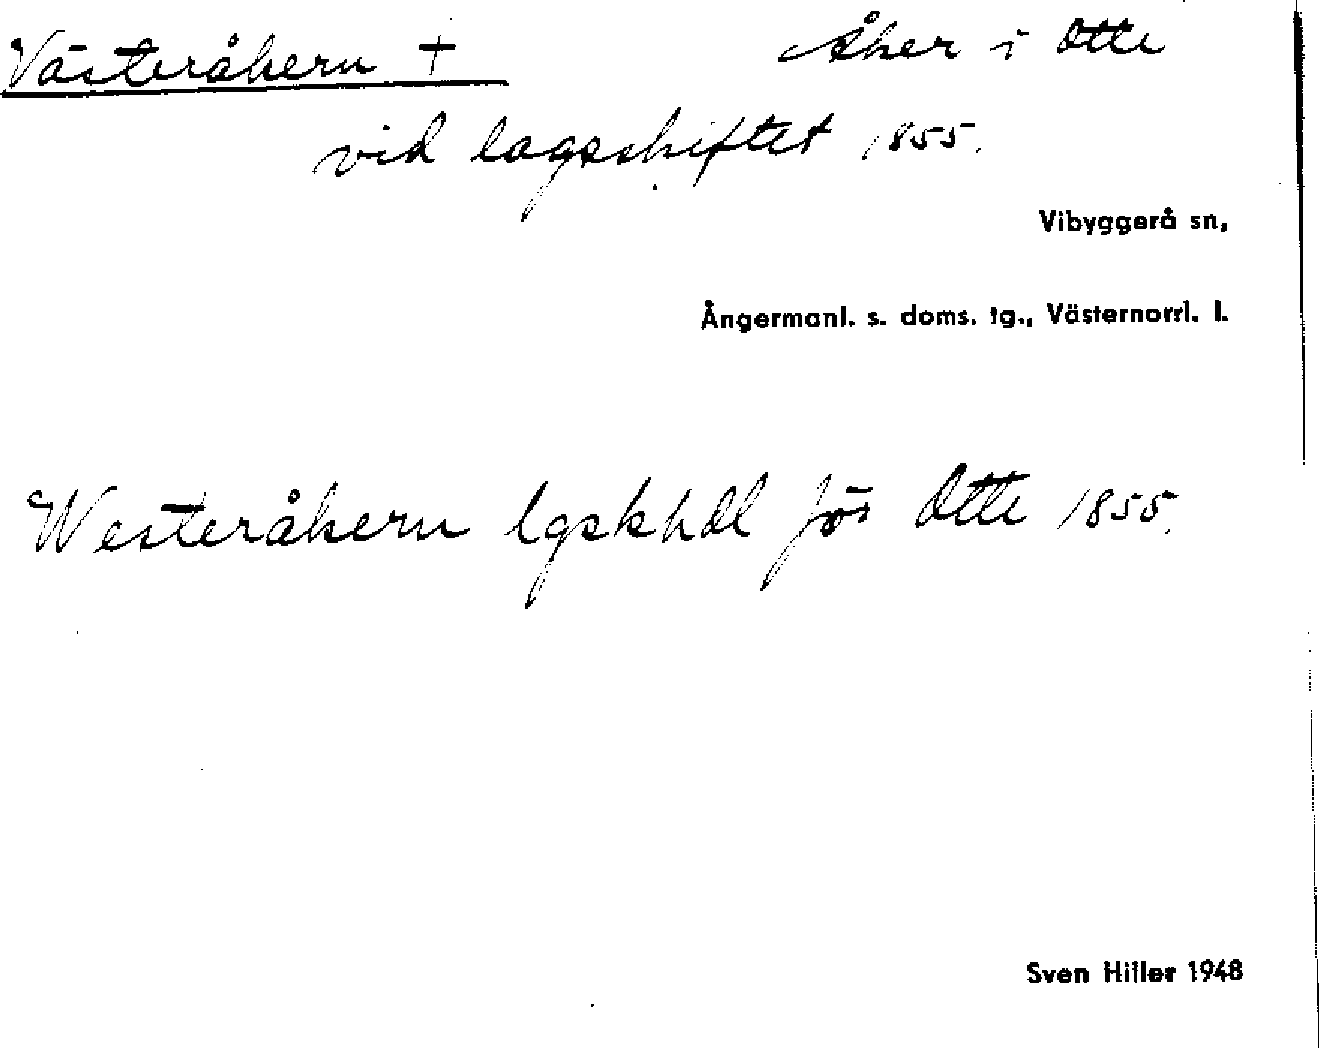 Västeråkern +
Åker i Otte
vid lagaskiftet 1855.
Vibyggerå sn,
Ångermanl. s. doms. tg., Västernorrl. l.
Westeråkern lgskhdl för Otte 1855.
Sven Hiller 1948